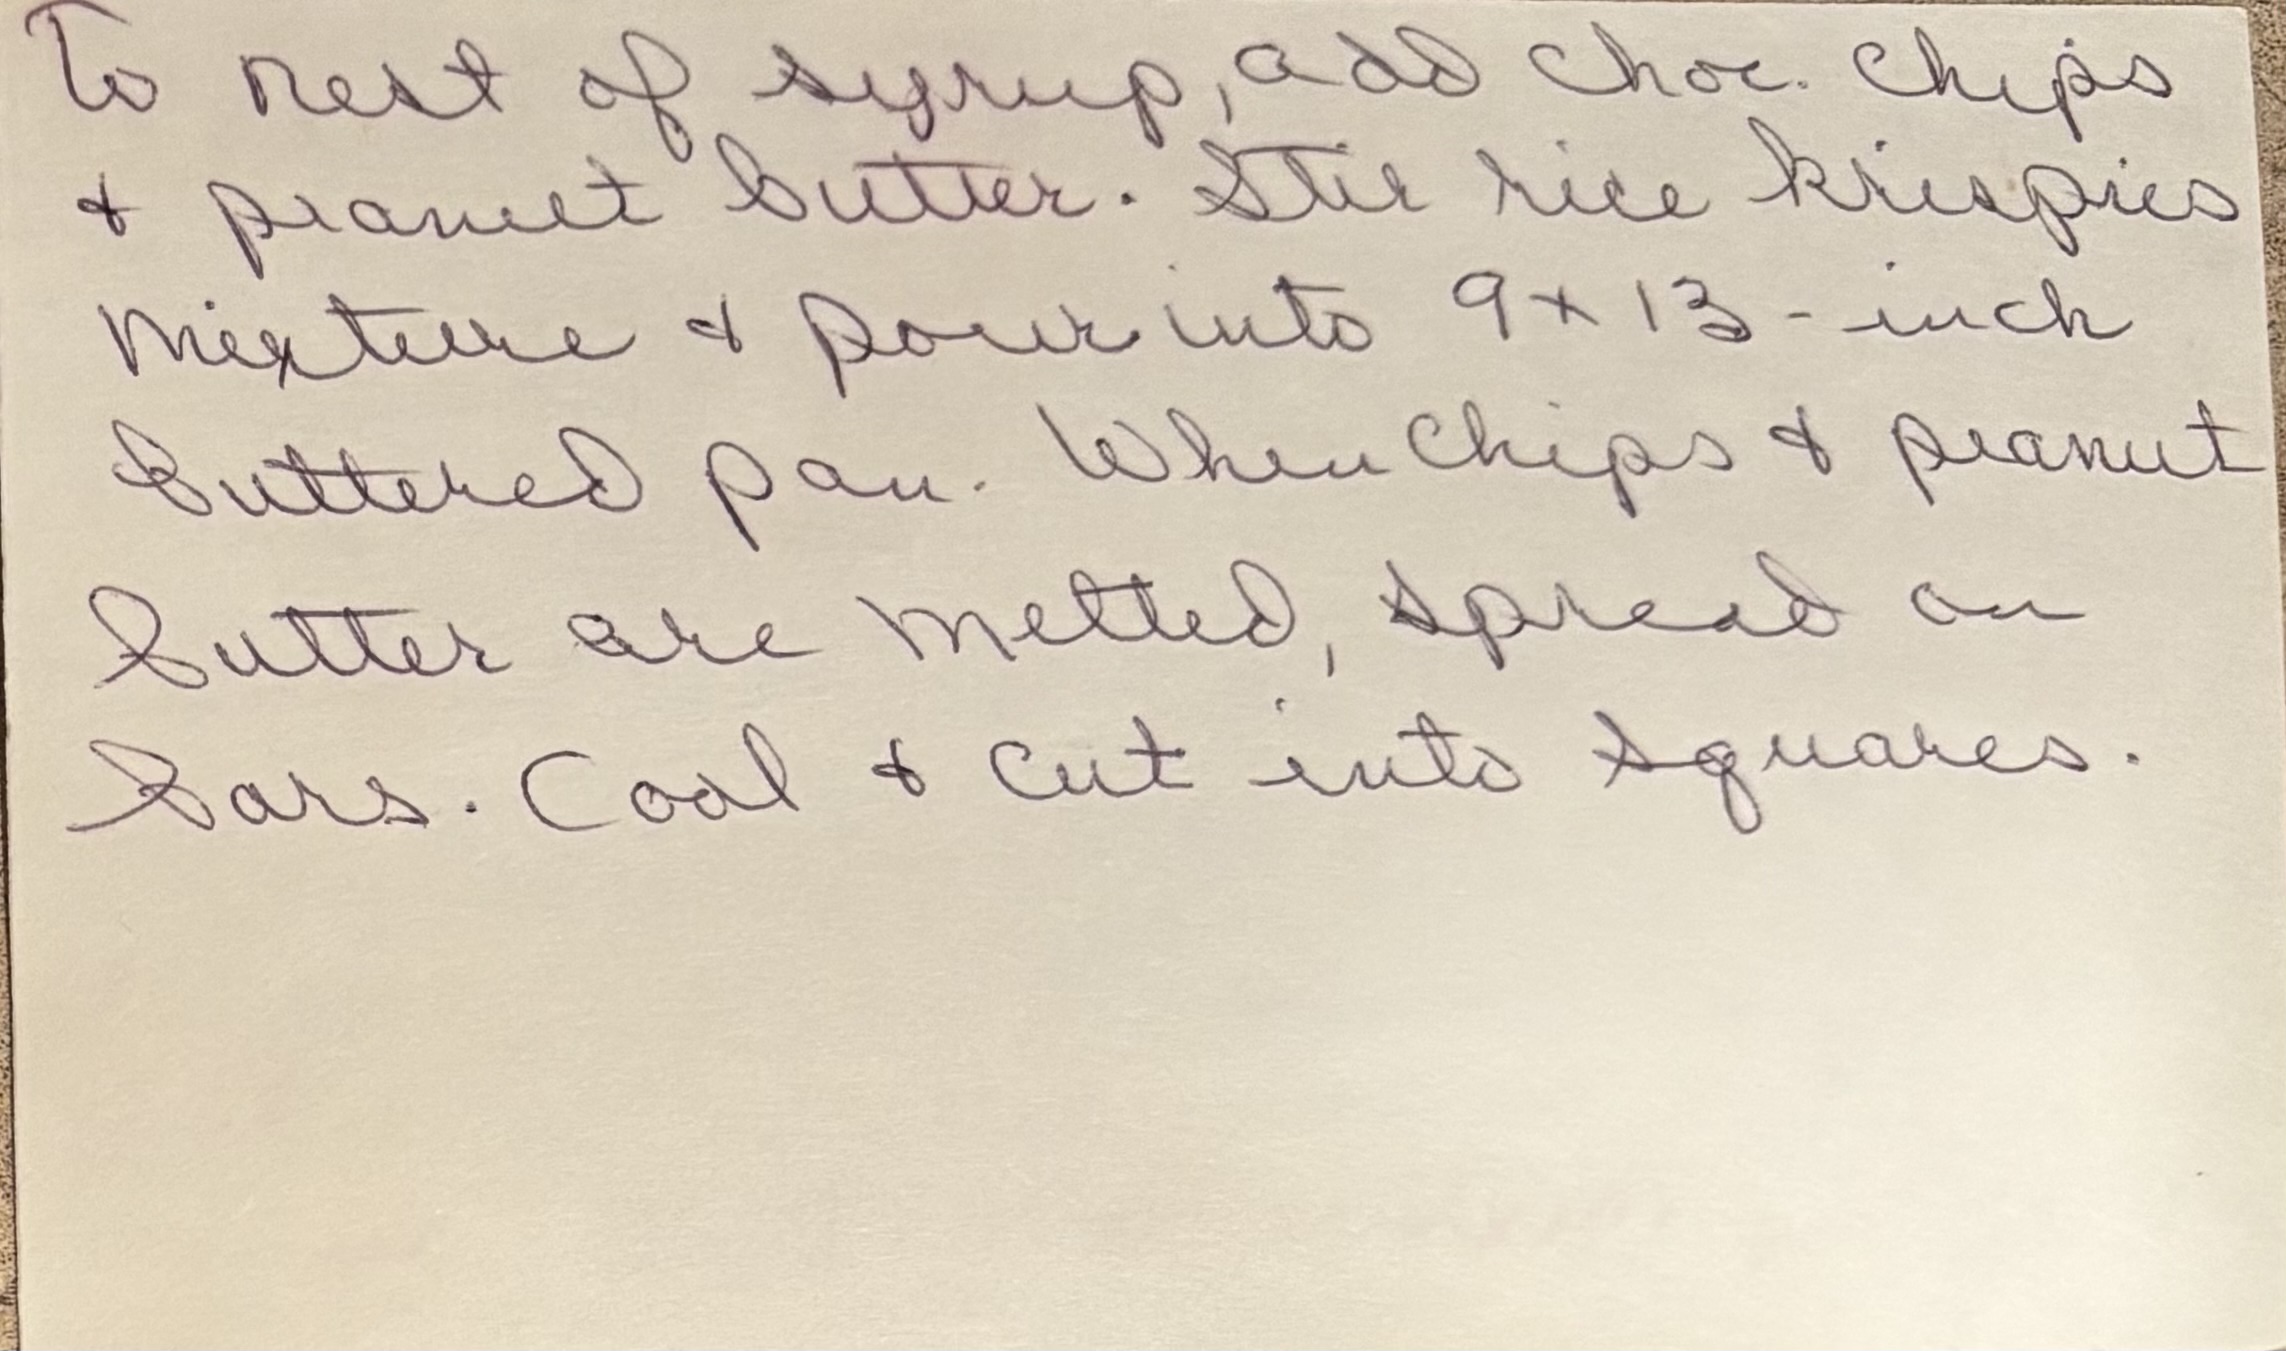 To rest of syrup, add choc. chips
& peanut butter. Stir rice krispies
mixture & pour into 9x13-inch
buttered pan. When chips & peanut
butter are melted, spread on
bars. Cool & cut into squares.